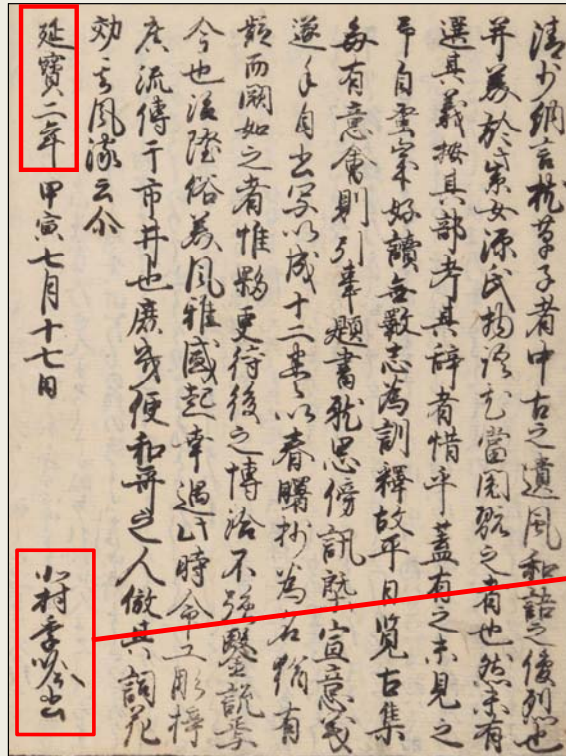 清少納言枕草子者中古之遺風和語之俊烈也
并義於紫女源氏物語尤當閲翫之者也然未有
選其義按其部考其辞者惜乎蓋有之未見之
予自童家好讀無斁志為訓釋故平日覧古集
毎有意會則引事題書就思傍訊塾宣意義
遂手自出寫以成十二巻以春曙抄為名猶有
類而闕如之者惟夥更待後之博洽不強鑿説矣
今也治隆俗美風雅盛起幸遇此時命工彫梓
廣流傳于市井也庶幾使和哥之人倣其詞花
効言風流云尒
延寳二年甲寅七月十七日
北村季吟書